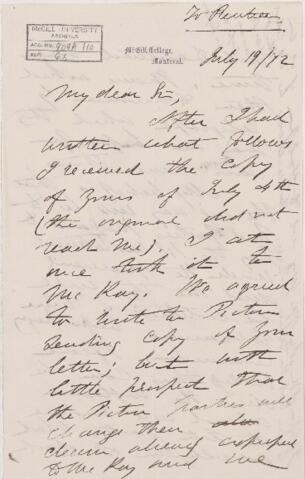 McGILL UNIVERSITY
ARCHIVES
ACC. NO.
REF.
McGill College,
Montreal.
July 19/72
My dear Sir,
After I had
written what follows
I received the copy
of yours of July 4th
(the original did not
reach me). I at
once took it to
McKay. We agreed
to write to Pictou
sending copy of your
letter; but with
little prospect that
the Pictou parties will
change their
claim already
to McKay and me